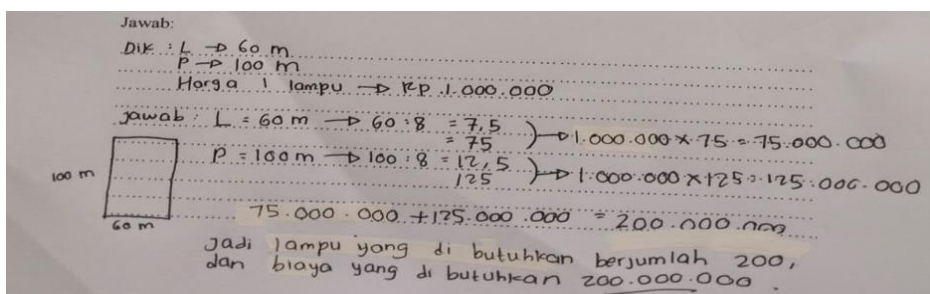 Jawab:
Dik : L → 60 m
P → 100 m
Harga 1 lampu → Rp 1.000.000
Jawab : L = 60 m → 60 : 8 = 7,5
= 75 → 1.000.000 x 75 = 75.000.000
P = 100 m → 100 : 8 = 12,5
125 → 1.000.000 x 125 = 125.000.000
100 m
75.000.000 + 125.000.000 = 200.000.000
60 m
Jadi lampu yang di butuhkan berjumlah 200,
dan biaya yang di butuhkan 200.000.000.